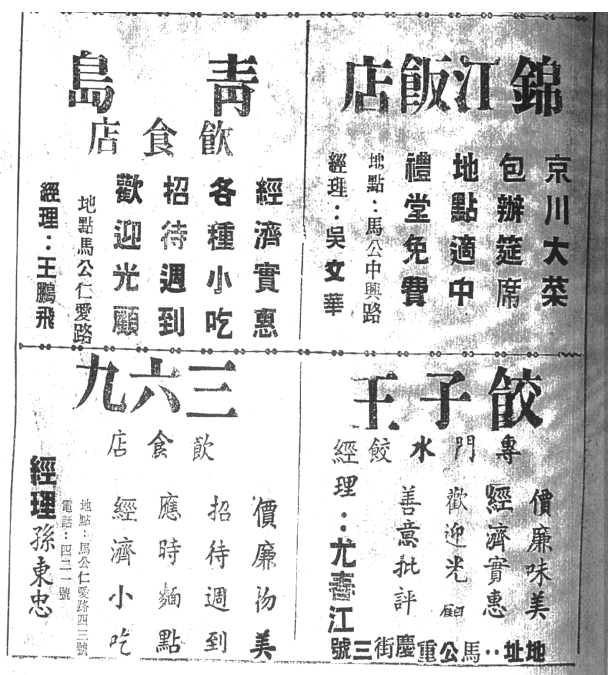 錦江飯店
京川大菜
包辦筵席
地點適中
禮堂免費
地點：馬公中興路
經理：吳文華
青島
飲食店
經濟實惠
各種小吃
招待週到
歡迎光顧
地點馬公仁愛路
經理：王鵬飛
餃子王
專門水餃
價廉味美
經濟實惠
歡迎光顧
善意批評
經理：尤春江
地址：馬公重慶街三號
三六九
飲食店
價廉物美
招待週到
應時麵點
經濟小吃
地點：馬公仁愛路四三號
電話：四二一號
經理孫東忠